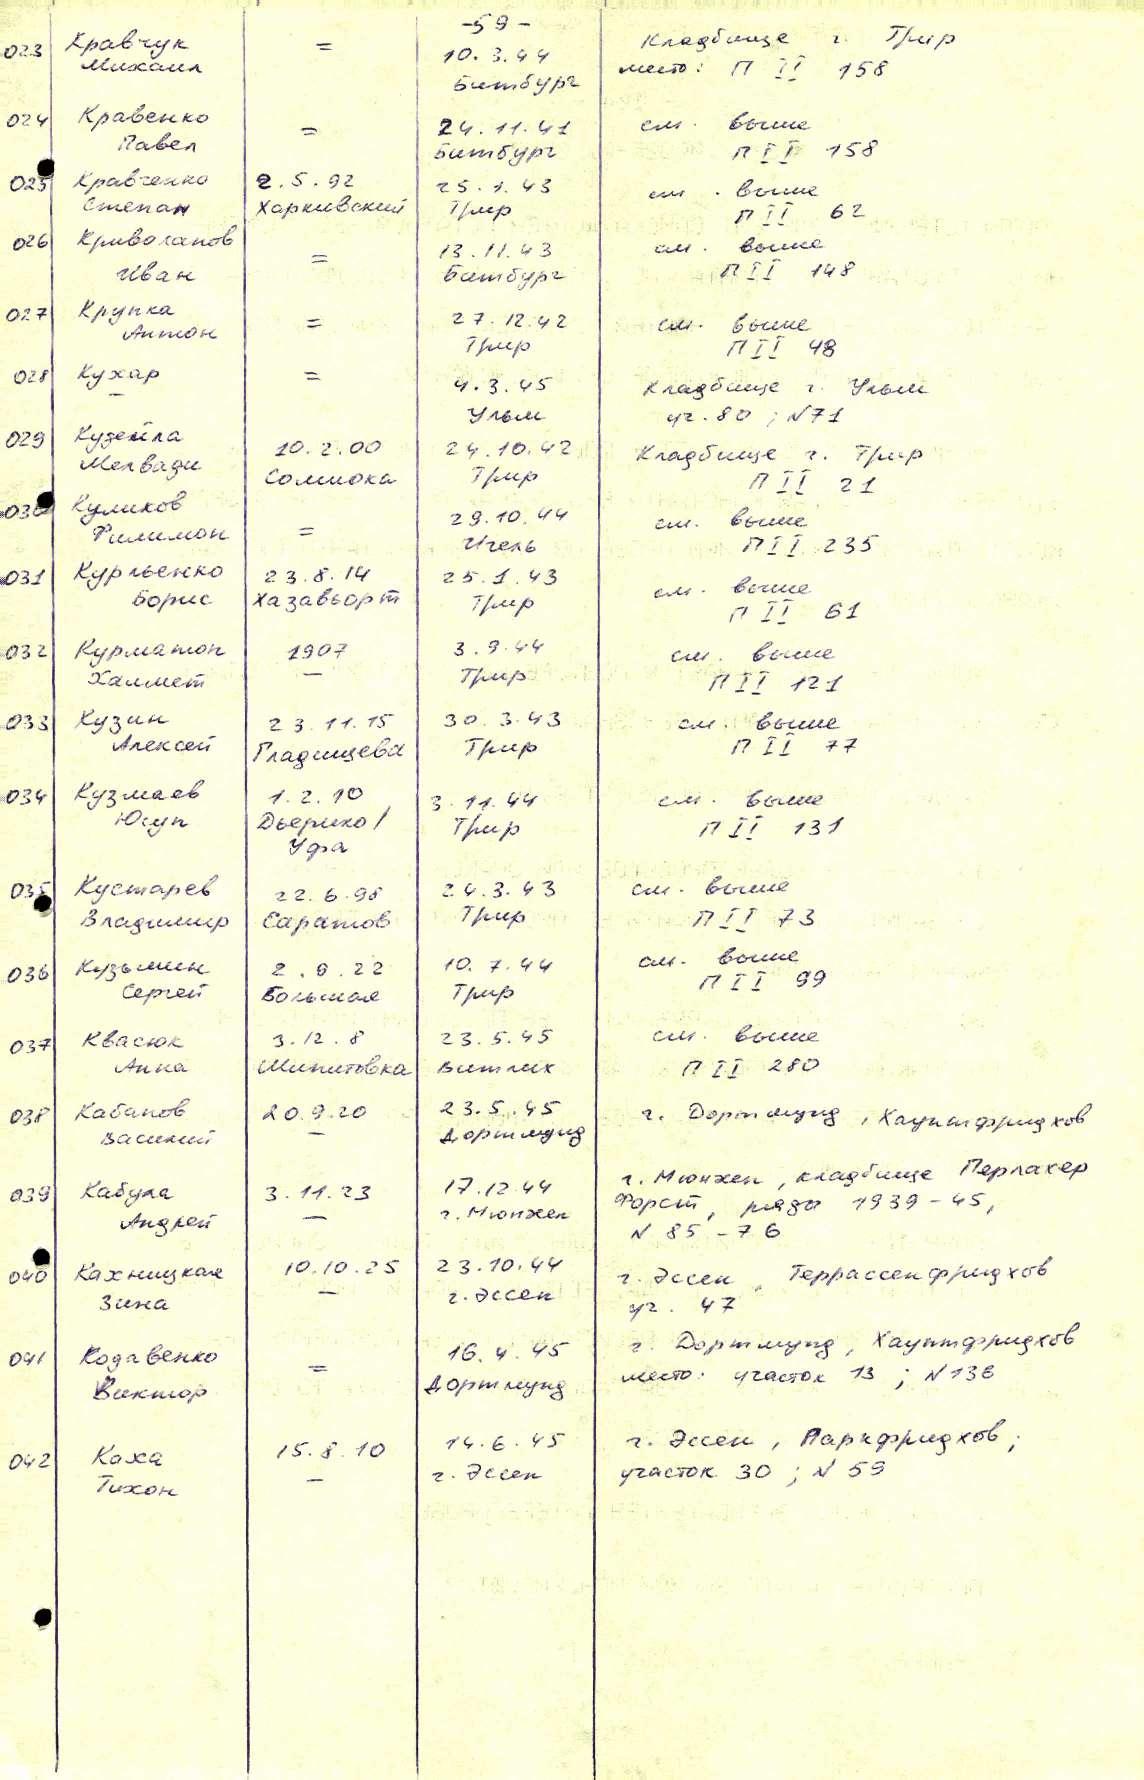 -59-
023 Кравчук = 10.3.44 Кладбище г. Трир
Михаил Битбург место: П II 158
024 Кравенко = 24.11.41 см. выше
Павел Битбург П II 158
025 Кравченко 2.5.92 25.1.43 см. выше
Степан Харкивский Трир П II 62
026 Криволапов = 13.11.43 см. выше
Иван Битбург П II 148
027 Крупка = 27.12.42 см. выше
Антон Трир П II 48
028 Кухар = 4.3.45 Кладбище г. Ульм
– Ульм уч. 80 ; N71
029 10.2.00 24.10.42 Кладбище г. Трир
Солиока Трир П II 21
030 Куликов = 29.10.44 см. выше
Филимон Игель П II 235
031 Курльенко 23.8.14 25.1.43 см. выше
Борис Хазавьорт Трир П II 61
032 Курматоп 1907 3.9.44 см. выше
Халмет – Трир П II 121
033 Кузин 23.11.15 30.3.43 см. выше
Алексей Гладищева Трир П II 77
034 Кузмаев 1.2.10 3.11.44 см. выше
Юсуп Дьерико/ Трир П II 131
Уфа
035 Кустарев 22.6.98 24.3.43 см. выше
Владимир Саратов Трир П II 73
036 Кузьмин 2.9.22 10.7.44 см. выше
Сергей Большое Трир П II 99
037 Квасюк 3.12.8 23.5.45 см. выше
Анна Шипитовка Витлих П II 280
038 Кабанов 20.9.20 23.5.45 г. Дортмунд, Хауптфридхов
Василий – Дортмунд
039 Кабула 3.11.23 17.12.44 г. Мюнхен, кладбище Перлахер
Андрей – г. Мюнхен Форст, ряды 1939-45,
N 85-76
040 Кахницкая 10.10.25 23.10.44 г. Эссен, Террассенфридхов
Зина – г. Эссен уч. 47
041 Кодавенко = 16.4.45 г. Дортмунд, Хауптфридхов
Виктор Дортмунд место: участок 13 ; N136
042 Каха 15.8.10 14.6.45 г. Эссен, Паркфридхов;
Тихон – г. Эссен участок 30 ; N 59